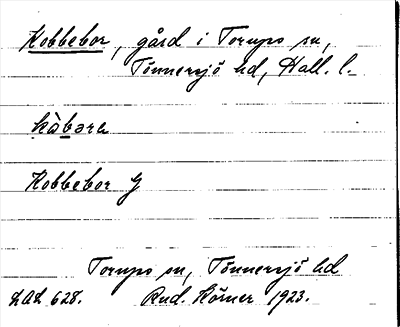 Kobbebor, gård i Torups sn,
Tönnersjö hd, Hall. l.
kȧ̀bərα
Kobbebor G
Torups sn, Tönnersjö hd
LAL 628. Rud. Körner 1923.